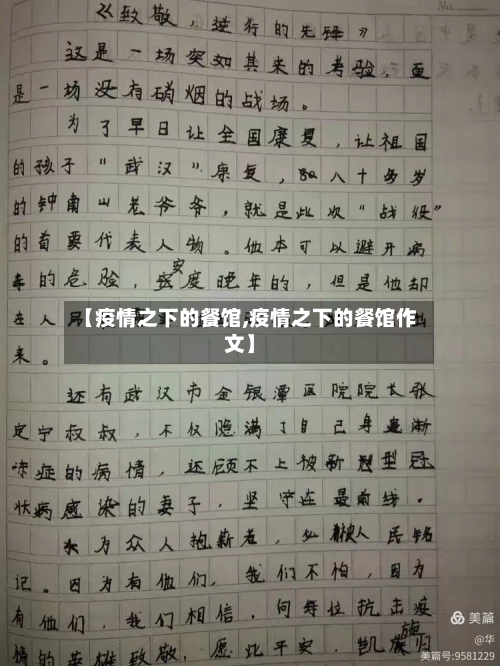 《致敬，逆行的先锋》
这是一场突如其来的考验，更
是一场没有硝烟的战场。
为了早日让全国康复，让祖国
的孩子“武汉”康复，八十多岁
的钟南山老爷爷，就是此次“战役”
的首要代表人物。他本可以避开病
毒的危险，安度晚年的，但是他却
在人民
【疫情之下的餐馆,疫情之下的餐馆作
文】
来。
还有武汉市金银潭医院院长张
定宇叔叔，不仅隐满了自己身患渐
冻症的病情，还顾不上被新型冠
状病感染的妻子，坚守在最前线。
为众人抱薪者，必被人民铭
记。因为有他们，我们不怕，因为
有他们，我们相信，向每位抗击疫
情的英雄致敬，愿此平安，凯旋归
美篇
@华
美篇号:9581229